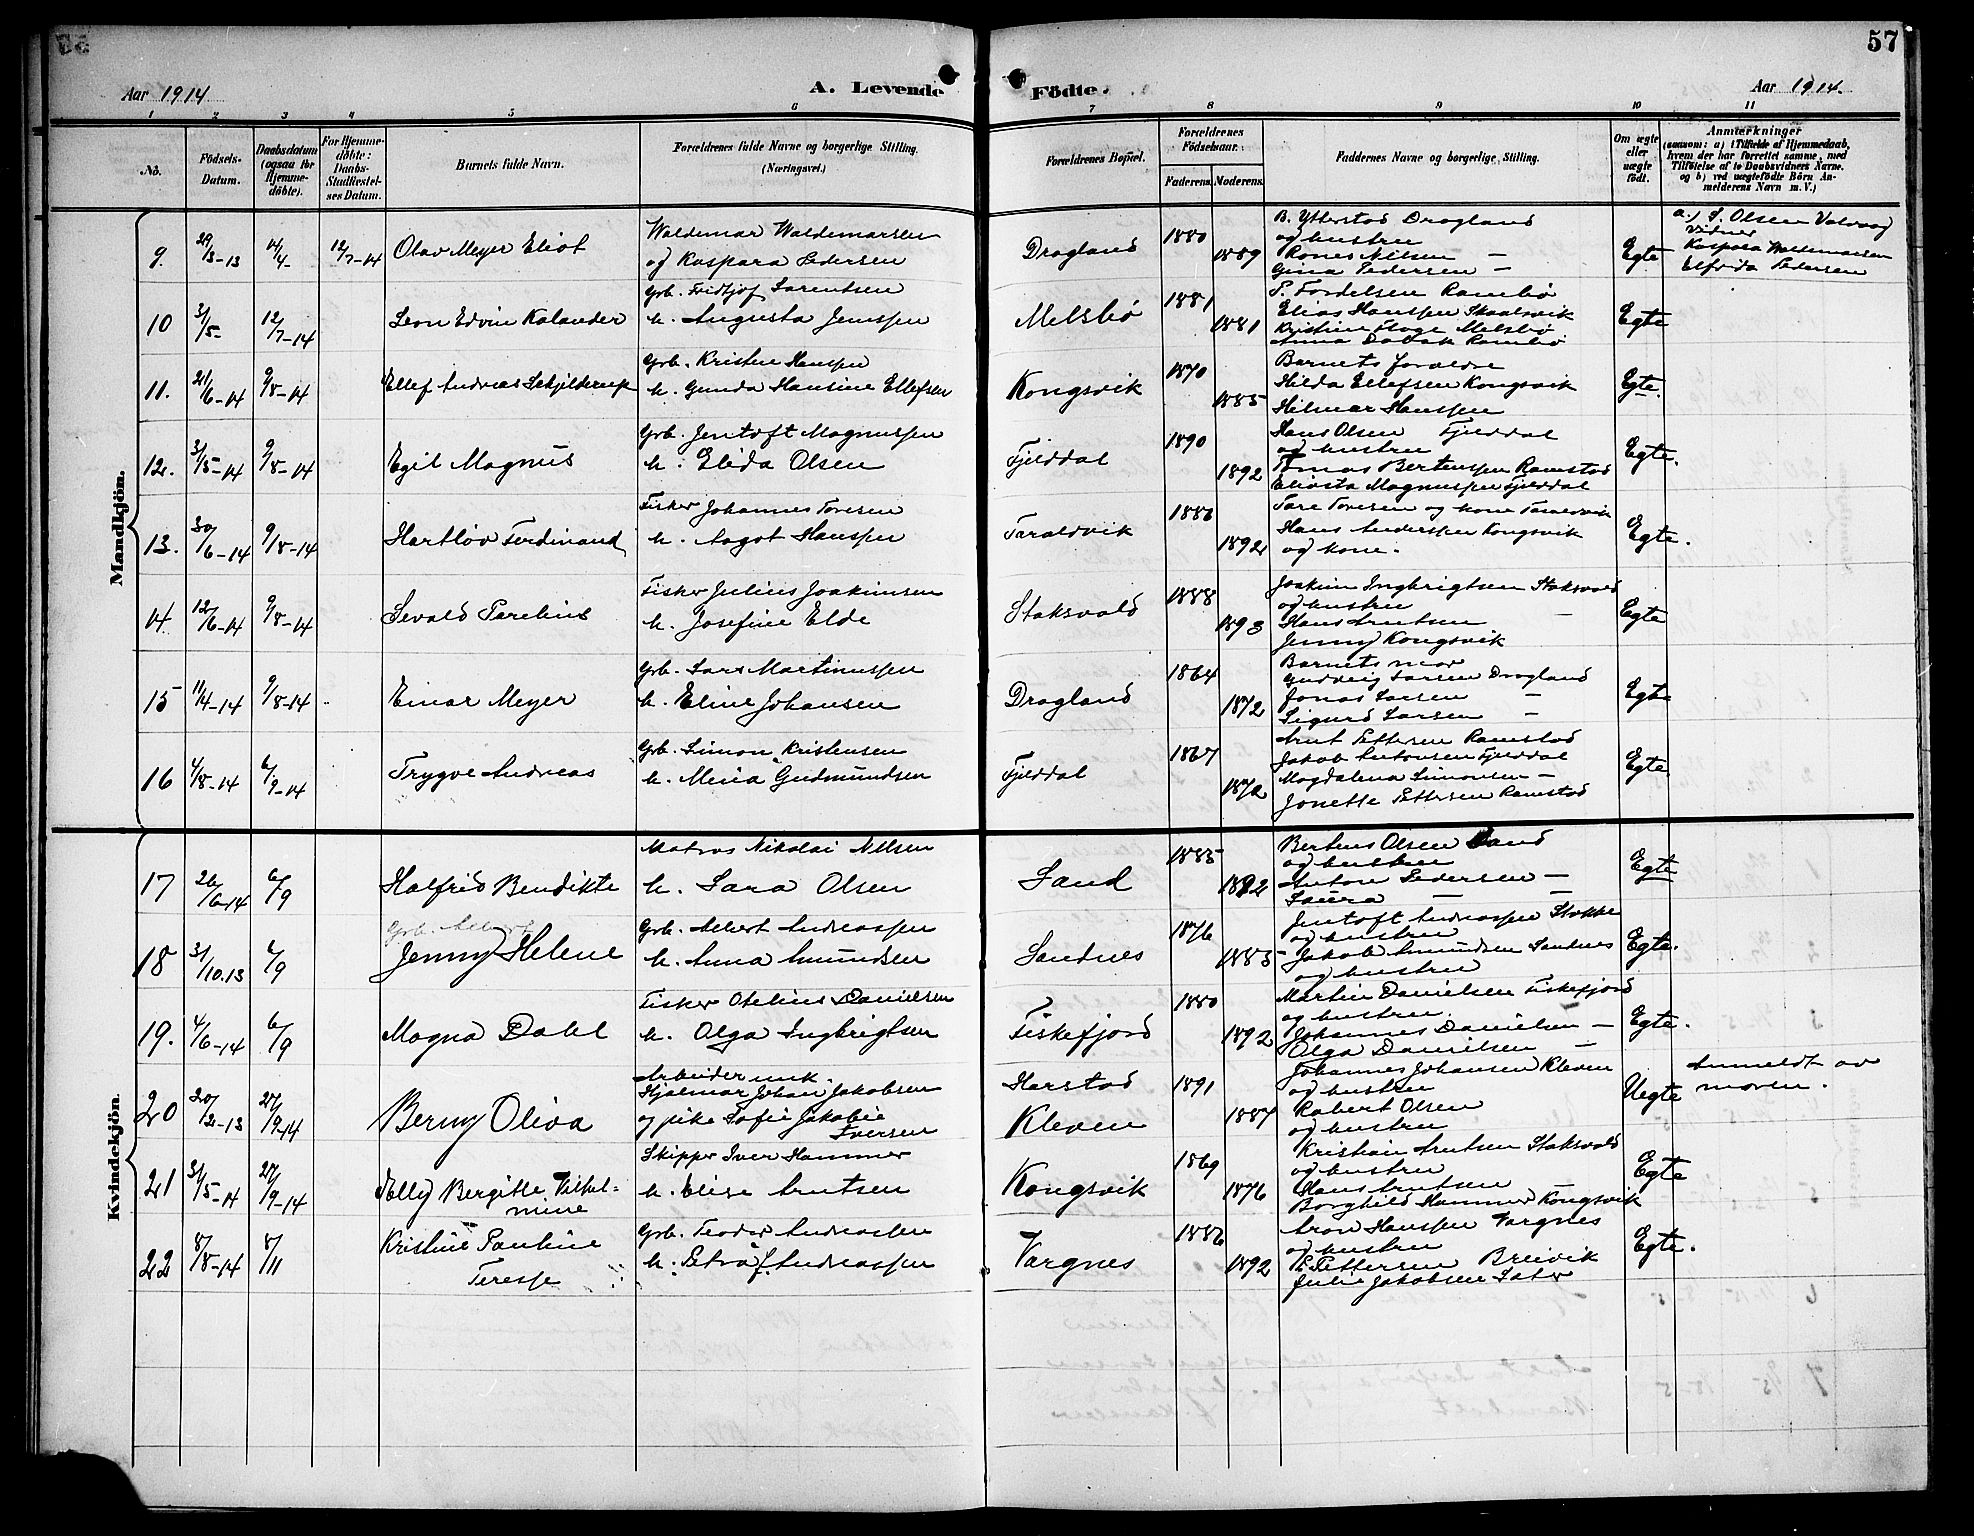 57
Aar 1914.
A. Levende Födte.
Aar 1914.
1 2 3 4 5 6 7 8 9 10 11
No.
Födsels-Datum.
Daabsdatum (ogsaa for Hjemmedöbte).
For Hjemmedöbte: Daabs-Stadfæstelses Datum.
Barnets fulde Navn.
Forældrenes fulde Navne og borgerlige Stilling. (Næringsvei.)
Forældrenes Bopæl.
Forældrenes Födselsaar.
Faderens. Moderens.
Faddernes Navne og borgerlige Stilling.
Om ægte eller uægte födt.
Anmærkninger
(saasom: a) i Tilfælde af Hjemmedaab, hvem der har forrettet samme, med Tilföielse af to Daabsvidners Navne. og b) ved uægtefödte Börn Anmelderens Navn m. V.)
Mandkjön.
9. 29/3-13 14/4- 12/7-14 Olav Meyer Eliot
Waldemar Waldemarsen
og Kaspara Pedersen
Dragland 1880 1889
B. Ytterstad Dragland
og hustru
Rones Nilsen -
Gina Pedersen -
Egte
a.) S. Olsen Valvaag
Vidner
Kaspara Waldemarsen
Elfrida Pedersen
10 31/5- 12/7-14 Leon Edvin Kalander
Grb. Fridtjof Sarentsen
h. Augusta Jenssen
Melsbö 1881 1881
P. Fordelsen Rambö
Elias Hanssen Skaalsvik
Kristine Hage Melsbö
Egte
11. 21/6-14 9/8-14 Ellef Andreas Schjilderup
Grb. Kristen Hanssen
h. Gunda Hansine Ellefsen
Kongsvik 1870 1885
Barnets forældre
Hilda Ellefsen Kongsvik
Hilmar Hanssen
Egte.
12. 31/5-14 9/8-14 Egil Magnus
Grb. Jentoft Magnussen
h. Elida Olsen
Fjelddal 1890 1892
Hans Olsen Fjelddal
og hustru
Tomas Bertenssen Ramstad
Elivsta Magnussen Fjelddal
Egte.
13. 30/6-14 9/8-14 Hartløv Ferdinand
Fisker Johannes Toresen
h. Aagot Hanssen
Taraldvik 1886 1892
Tore Toresen og kone Taraldvik
Hans Anderssen Kongsvik
og kone.
Egte.
14 12/6-14 9/8-14 Sevald Parelius
Fisker Julius Joakimsen
h. Josefine Elde
Staksvold 1888 1893
Joakim Ingbrigtsen Staksvold
og hustru
Hans Arntsen -
Jenny Kongsvik
Egte
15 11/4-14 9/8-14 Einar Meyer
Grb. Lars Martinussen
h. Eline Johansen
Dragland 1864 1872
Barnets mor
Gudveig Larsen Dragland
Jonas Larsen -
Sigurd Larsen -
Egte
16 4/8-14 6/9-14 Trygve Andreas
Grb. Simon Kristensen
h. Mina Gudmundsen
Fjelddal 1867 1872
Arnt Pettersen Ramstad
Jakob Antonsen Fjelddal
Magdalena Simonsen -
Jonette Pettersen Ramstad
Egte
Kvindekjön.
17 26/6-14 6/9 Halfrid Bendikte
Matros Nikolai Nilsen
h. Sara Olsen
Sand 1885 1892
Bertens Olsen Sand
og hustru
Anton Pedersen -
Laura - -
Egte
18 31/10.13 6/9 Jenny Helene
Grb. Albert
Grb. Albert Andreassen
h. Anna Amundsen
Sandnes 1876 1885
Jentoft Andreassen Stokke
og hustru
Jakob Amundsen Sandnes
og hustru
Egte.
19. 4/6-14 6/9 Magna Dahl
Fisker Otelius Danielsen
h. Olga Ingbrigtsen
Fiskefjord 1880 1892
Martin Danielsen Fiskefjord
og hustru.
Johannes Danielsen -
Olga Danielsen -
Egte.
20 20/2-13 27/9-14 Berny Oliva
Arbeider unk.
Hjalmar Johan Jakobsen
og pike Sofie Jakobie
Iversen
Harstad
Kleven 1891 1887
Johannes Johansen Kleven
og hustru
Robert Olsen
og hustru
Uegte
Anmeldt av
moren.
21 31/5-14 27/9-14 Elly Bergitte Vilhel=
mine
Skipper Iver Hammer
h. Elise Arntsen
Kongsvik 1869 1876
Kristian Arntsen Staksvold
og hustru
Hans Arntsen -
Borghild Hammer Kongsvik
Egte
22 8/8-14 8/11 Kristine Pauline
Teresse
Grb. Teodor Andreassen
h. Petra f. Andreassen
Vargnes 1886 1892
Aron Hanssen Vargnes
og hustru
P. Pettersen Breivik
Julie Jakobsen Sater
Egte.